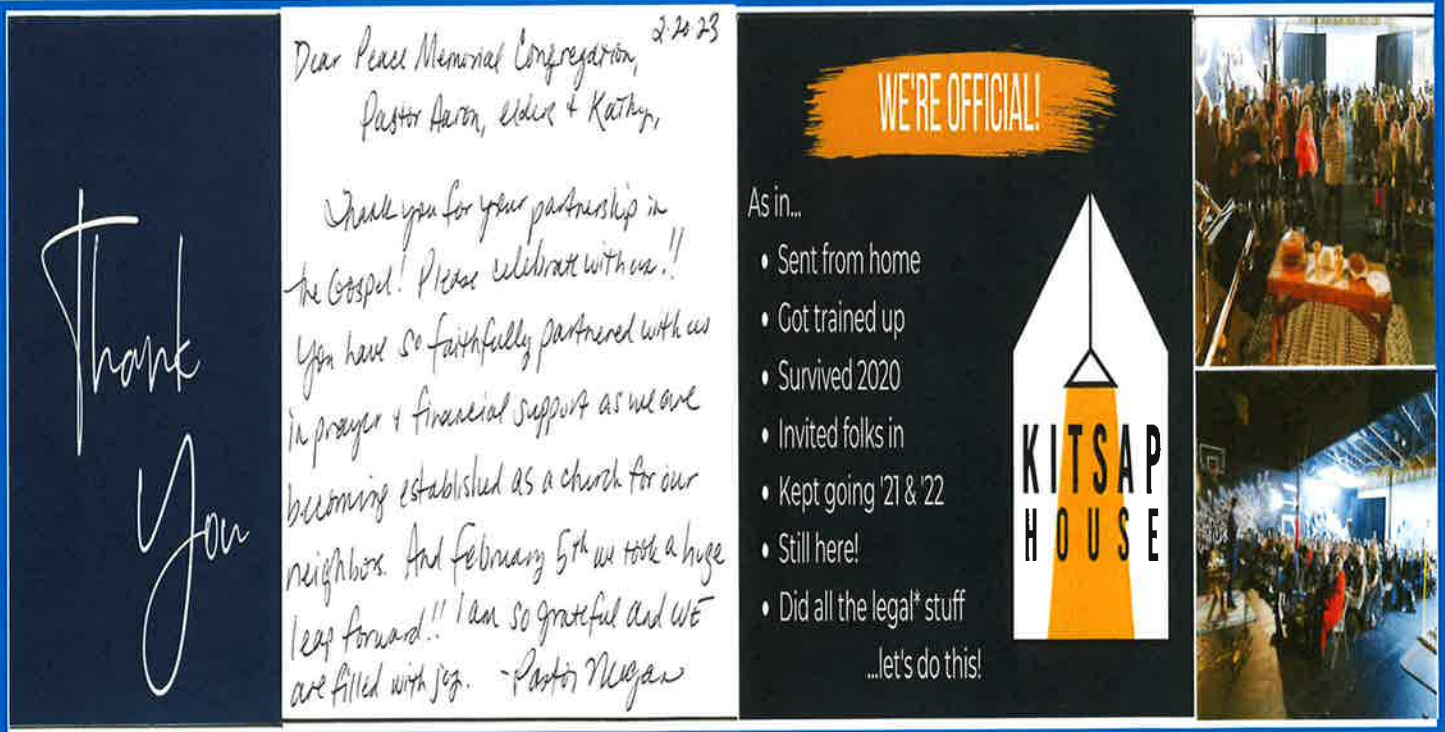 Thank
You
2.20.23
Dear Peace Memorial Congregation,
Pastor Aaron, elders + Kathy,
Thank you for your partnership in
the Gospel! Please celebrate with us!!
You have so faithfully partnered with us
in prayer + financial support as we are
becoming established as a church for our
neighbors. And February 5th we took a huge
leap forward!! I am so grateful and WE
are filled with joy. -Pastor Megan
WE'RE OFFICIAL!
As in...
• Sent from home
• Got trained up
• Survived 2020
• Invited folks in
• Kept going '21 & '22
• Still here!
• Did all the legal* stuff
...let's do this!
KITSAP
HOUSE